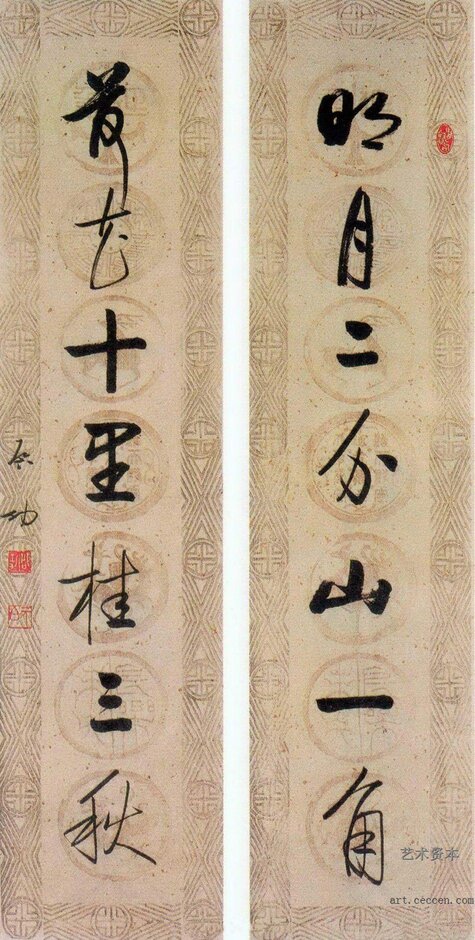 明月二分山一角
荷花十里桂三秋
启功
艺术资本
art.ceccen.com